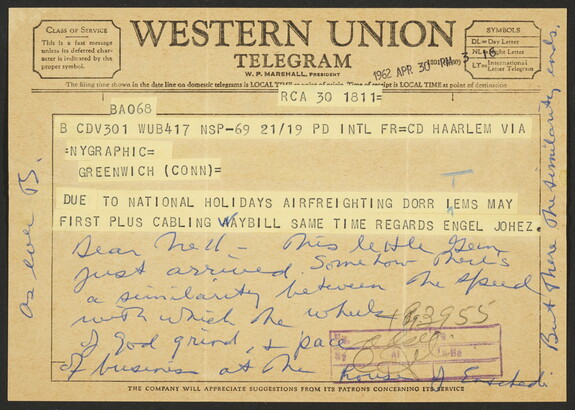 CLASS OF SERVICE
This is a fast message
unless its deferred char-
acter is indicated by the
proper symbol.
WESTERN UNION
TELEGRAM
W. P. MARSHALL, PRESIDENT
SYMBOLS
DL=Day Letter
NL=Night Letter
LT=International
Letter Telegram
1962 APR 30 PM 3 18
The filing time shown in the date line on domestic telegrams is LOCAL TIME at point of origin. Time of receipt is LOCAL TIME at point of destination
RCA 30 1811=
BA068
B CDV301 WUB417 NSP-69 21/19 PD INTL FR=CD HAARLEM VIA
=NYGRAPHIC=
GREENWICH (CONN)=
DUE TO NATIONAL HOLIDAYS AIRFREIGHTING DORR IEMS MAY
FIRST PLUS CABLING WAYBILL SAME TIME REGARDS ENGEL JOHEZ.
T
Dear Nell - This little Gem
just arrived. Somehow there's
a similarity between the speed
with which the wheels
of God grind, & pace
of business at the House of Enschedé
But there the similarity ends.
as ever B.
3955
THE COMPANY WILL APPRECIATE SUGGESTIONS FROM ITS PATRONS CONCERNING ITS SERVICE